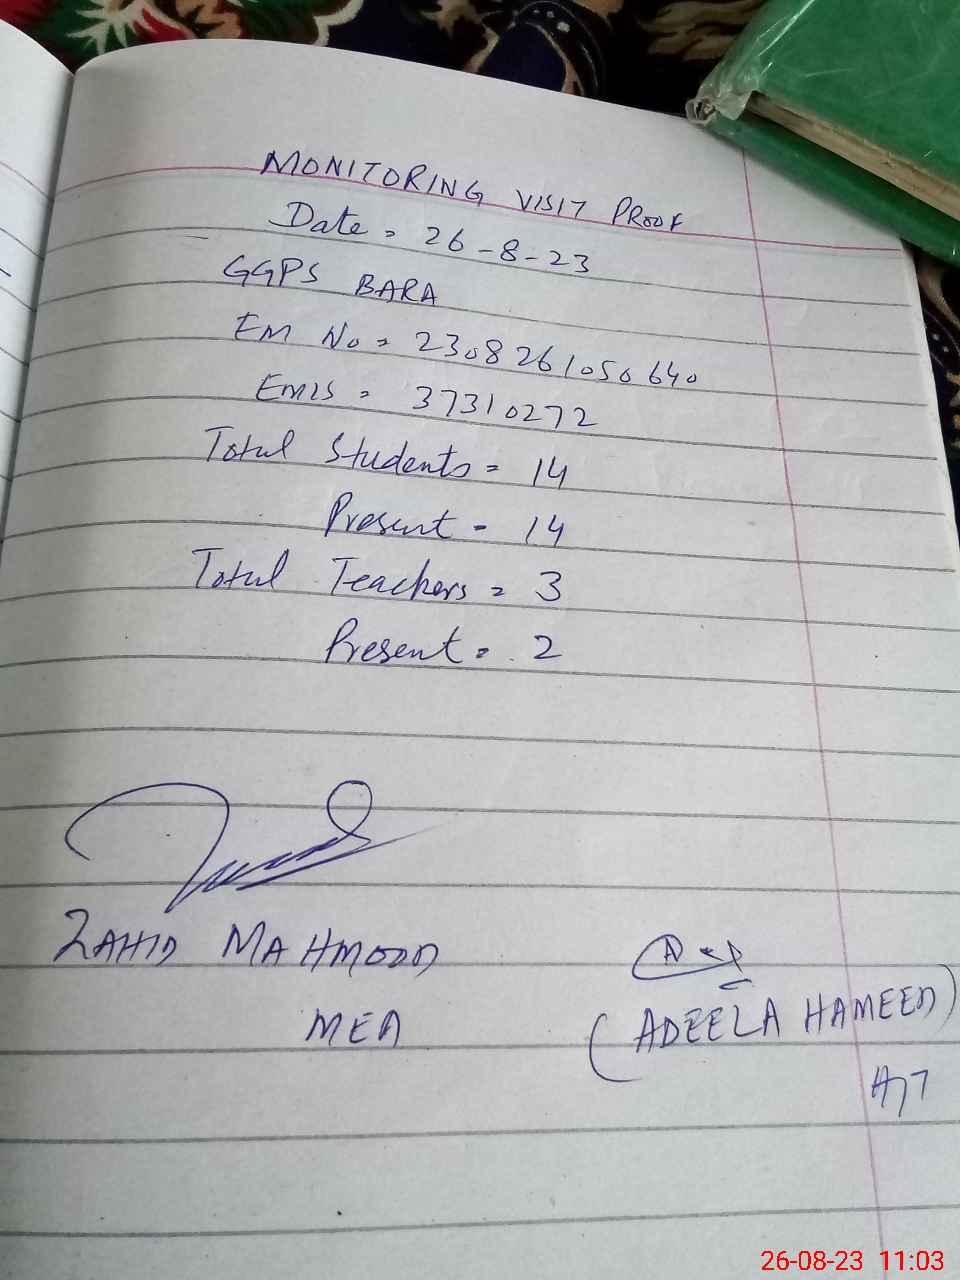 MONITORING VISIT PROOF
Date = 26-8-23
GGPS BARA
EM No = 2308261050640
EMIS = 37310272
Total Students = 14
Present = 14
Total Teachers = 3
Present = 2
ZAHID MAHMOOD
MEA
(ADEELA HAMEED)
26-08-23 11:03